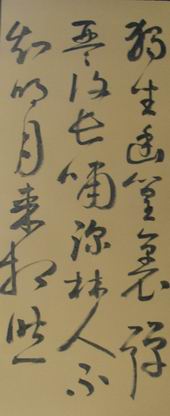 獨坐幽篁裏彈
琴復長嘯深林人不
知明月來相照